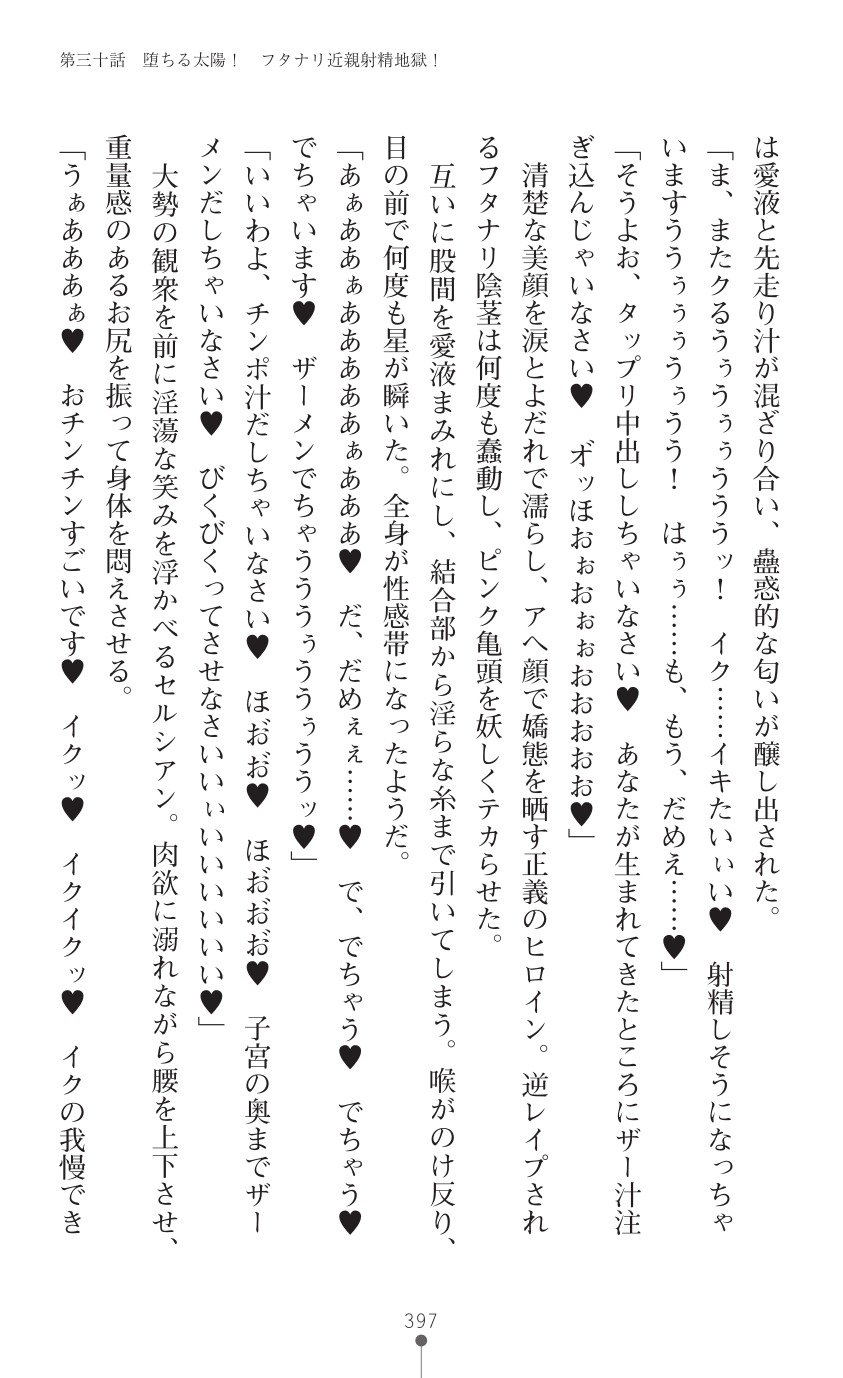 第三十話　堕ちる太陽！　フタナリ近親射精地獄！
は愛液と先走り汁が混ざり合い、蠱惑的な匂いが醸し出された。
「ま、またクるうぅうぅぅううッ！　イク……イキたいぃい♥　射精しそうになっちゃ
いますううぅぅぅうぅうう！　はぅぅ……も、もう、だめえ……♥」
「そうよお、タップリ中出ししちゃいなさい♥　あなたが生まれてきたところにザー汁注
ぎ込んじゃいなさい♥　オ゛ッほおぉおぉぉおおおおお♥」
　清楚な美顔を涙とよだれで濡らし、アヘ顔で嬌態を晒す正義のヒロイン。逆レイプされ
るフタナリ陰茎は何度も蠢動し、ピンク亀頭を妖しくテカらせた。
　互いに股間を愛液まみれにし、結合部から淫らな糸まで引いてしまう。喉がのけ反り、
目の前で何度も星が瞬いた。全身が性感帯になったようだ。
「あぁああぁあああああぁあああ♥　だ、だめぇぇ……♥　で、でちゃう♥　でちゃう♥
でちゃいます♥　ザーメンでちゃうううぅううぅううッ♥」
「いいわよ、チンポ汁だしちゃいなさい♥　ほお゛お゛♥　ほお゛お゛お゛♥　子宮の奥までザー
メンだしちゃいなさい♥　びくびくってさせなさいいぃいいいいいい♥」
　大勢の観衆を前に淫蕩な笑みを浮かべるセルシアン。肉欲に溺れながら腰を上下させ、
重量感のあるお尻を振って身体を悶えさせる。
「うぁあああぁ♥　おチンチンすごいです♥　イクッ♥　イクイクッ♥　イクの我慢でき
397